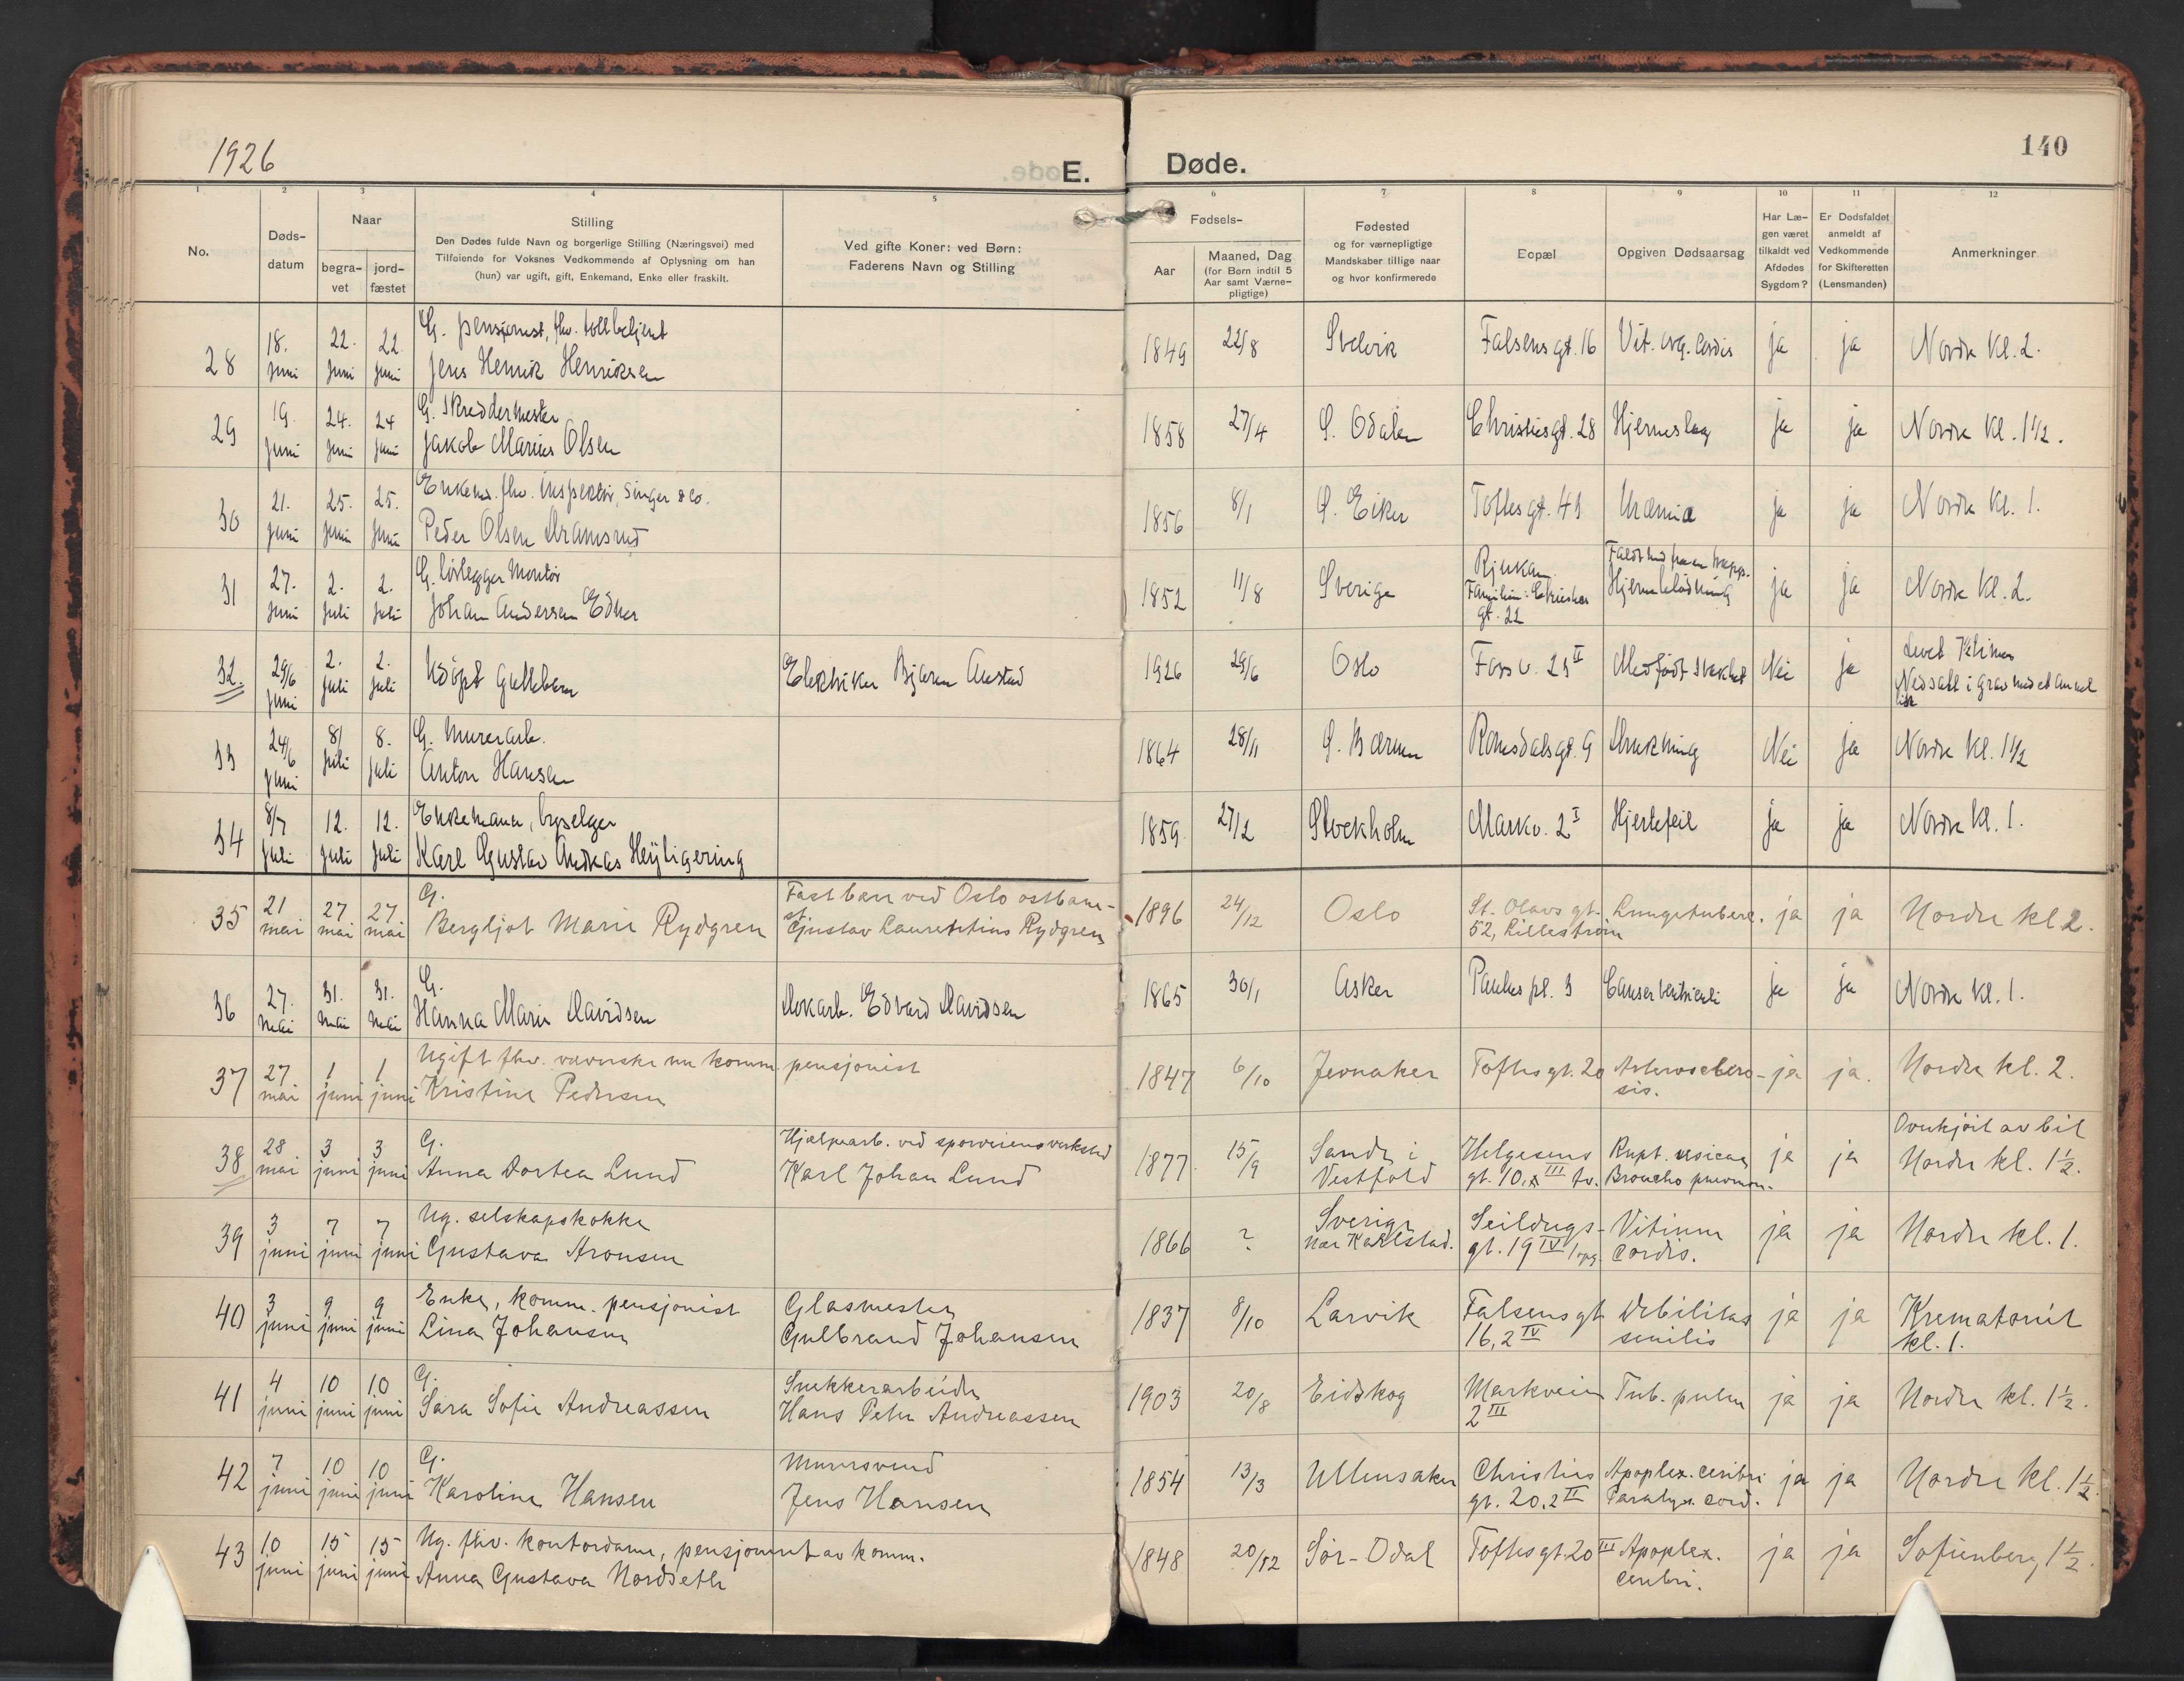 1926
E. Døde.
140
1 2 3 4 5 6 7 8 9 10 11 12
No.
Døds-
datum
Naar
begra-
vet
jord-
fæstet
Stilling
Den Dødes fulde Navn og borgerlige Stilling (Næringsvei) med
Tilføiende for Voksnes Vedkommende af Oplysning om han
(hun) var ugift, gift, Enkemand, Enke eller fraskilt.
Ved gifte Koner: ved Børn:
Faderens Navn og Stilling
Fødsels-
Aar
Maaned, Dag
(for Børn indtil 5
Aar samt Værne-
pligtige)
Fødested
og for værnepligtige
Mandskaber tillige naar
og hvor konfirmerede
Bopæl
Opgiven Dødsaarsag
Har Læ-
gen været
tilkaldt ved
Afdødes
Sygdom?
Er Dødsfaldet
anmeldt af
Vedkommende
for Skifteretten
(Lensmanden)
Anmerkninger
28 18. juni 22. juni 22. juni G. pensjonist, fhv. tollbetjent
Jens Henrik Henriksen
1849 22/8 Svelvik Falsens gt. 16 Vit. org. cordis ja ja Nordre kl. 2.
29 19. juni 24. juni 24 juni G. Skreddermester
Jakob Marius Olsen
1858 27/4 S. Odalen Christies gt. 28 Hjerneslag ja ja Nordre kl. 1½.
30 21. juni 25. juni 25. juni Enkem. fhv. inspektør, Singer & Co.
Peder Olsen Kramsrud
1856 8/1 Ø. Eiker Toftes gt. 43 Uræmia ja ja Nordre kl. 1.
31 27. juni 2. juli 2. juli G. rørlegger montør
Johan Andersen Edner
1852 11/8 Sverige Rjukan
Familien: Christies
gt. 22
Hjerneblødning ja ja Nordre kl. 2.
32. 29/6 juni 2. juli 2. juli Udøpt guttebarn
Elektriker Bjarne Austad
1926 29/6 Oslo Foss v. 23 II Medfødt svakhet Nei ja Levet 7 timer
Nedsatt i grav med et annet
lik
33 24/6 juni 8/ juli 8. juli G. murerarb.
Anton Hansen
1864 28/11 Ø. Bærum Romsdals gt. 9 Drukning Nei ja Nordre kl. 1½
34 8/7 juli 12. juli 12. juli Enkemann,
Karl Gustav Andreas Heyligering
1859 27/12 Stockholm Markv. 2 I Hjertefeil ja ja Nordre kl. 1.
35 21 mai 27 mai 27 mai G.
Bergljot Marie Rydgren
Fast bærer ved Oslo østbane-
st. Gustav Laurentius Rydgren
1896 24/12 Oslo St. Olavs gt.
52, Lillestrøm
Lungetuberk. ja ja Nordre kl 2.
36 27. mai 31. mai 31. mai G.
Hanna Marie Davidsen
Dokarb. Edvard Davidsen
1865 30/1 Asker Paulus pl. 3 Cancer ventriculi ja ja Nordre kl. 1.
37 27 mai 1 juni 1 juni Ugift fhv. væverske nu komm. pensjonist
Kristine Pedersen
1847 6/10 Jevnaker Toftes gt. 20 Arteriosclero-
sis.
ja ja. Nordre kl. 2.
38 28 mai 3 juni 3 juni G.
Anna Dortea Lund
Hjælpearb. ved sporveiens verksted
Karl Johan Lund
1877 15/9 Sande i
Vestfold
Helgesens
gt. 10, III tv.
Rupt. vesicae
Broncho pneumon.
ja ja Overkjørt av bil
Nordre kl. 1½.
39 3 juni 7 juni 7 juni Ug. selskapskokke
Gustava Aronsen
1866 ? Sverige
nær Karlstad.
Seildugs-
gt. 19 IV 1 opg.
Vitium
cordis.
ja ja Nordre kl. 1.
40 3 juni 9 juni 9 juni Enke, komm. pensjonist
Lina Johansen
Glasmester
Gulbrand Johansen
1837 8/10 Larvik Falsens gt
16, 2 IV
Debilitas
senilis
ja ja Krematoriet
kl. 1.
41 4 juni 10 juni 10 juni G.
Sara Sofie Andreassen
Snekkerarbeider
Hans Peter Andreassen
1903 20/8 Eidskog Markveien
2 III
Tub. pulm ja ja Nordre kl. 1½.
42 7 juni 10 juni 10 juni G.
Karoline Hansen
Murersvend
Jens Hansen
1854 13/3 Ullensaker Christies
gt. 20, 2 II
Apoplex. cerebri
Paralys. cord.
ja ja Nordre kl. 1½.
43 10 juni 15 juni 15 juni Ug. fhv. kontordame, pensjonert av komm.
Anna Gustava Nordseth
1848 20/12 Sør-Odal Toftes gt. 20 III Apoplex.
cerebri.
ja ja Sofienberg, 1½.